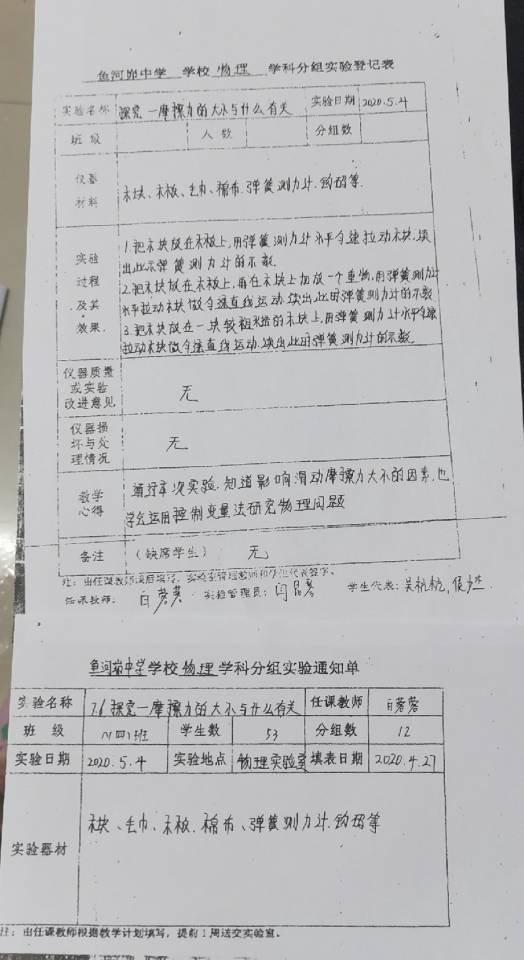 鱼河峁中学 学校 物理 学科分组实验登记表
实验名称 探究—摩擦力的大小与什么有关 实验日期 2020.5.4
班级 人数 分组数
仪器材料 木块、木板、毛巾、棉布.弹簧测力计.钩码等
实验过程及其效果
1.把木块放在木板上,用弹簧测力计水平匀速拉动木块,读
出此示弹簧测力计的示数.
2.把木块放在木板上,再在木块上加放一个重物,用弹簧测力计
水平拉动木块做匀速直线运动.读出此时弹簧测力计的示数
3.把木块放在一块较粗糙的木块上,用弹簧测力计水平匀速
拉动木块做匀速直线运动.读出此时弹簧测力计的示数.
仪器质量或实验改进意见 无
仪器损坏与处理情况 无
教学心得
通过本次实验.知道影响滑动摩擦力大小的因素,也
学会运用控制变量法研究物理问题
备注 (缺席学生) 无
注:由任课教师课后填写,实验室管理教师和学生代表签字。
任课教师: 白蓉蓉 实验管理员: 闫 学生代表: 吴杭杭,
鱼河峁中学学校物理学科分组实验通知单
实验名称 7.6探究—摩擦力的大小与什么有关 任课教师 白蓉蓉
班级 八(四)班 学生数 53 分组数 12
实验日期 2020.5.4 实验地点 物理实验室 填表日期 2020.4.27
实验器材 木块、毛巾.木板.棉布、弹簧测力计.钩码等
注:由任课教师根据教学计划填写,提前1周送交实验室。